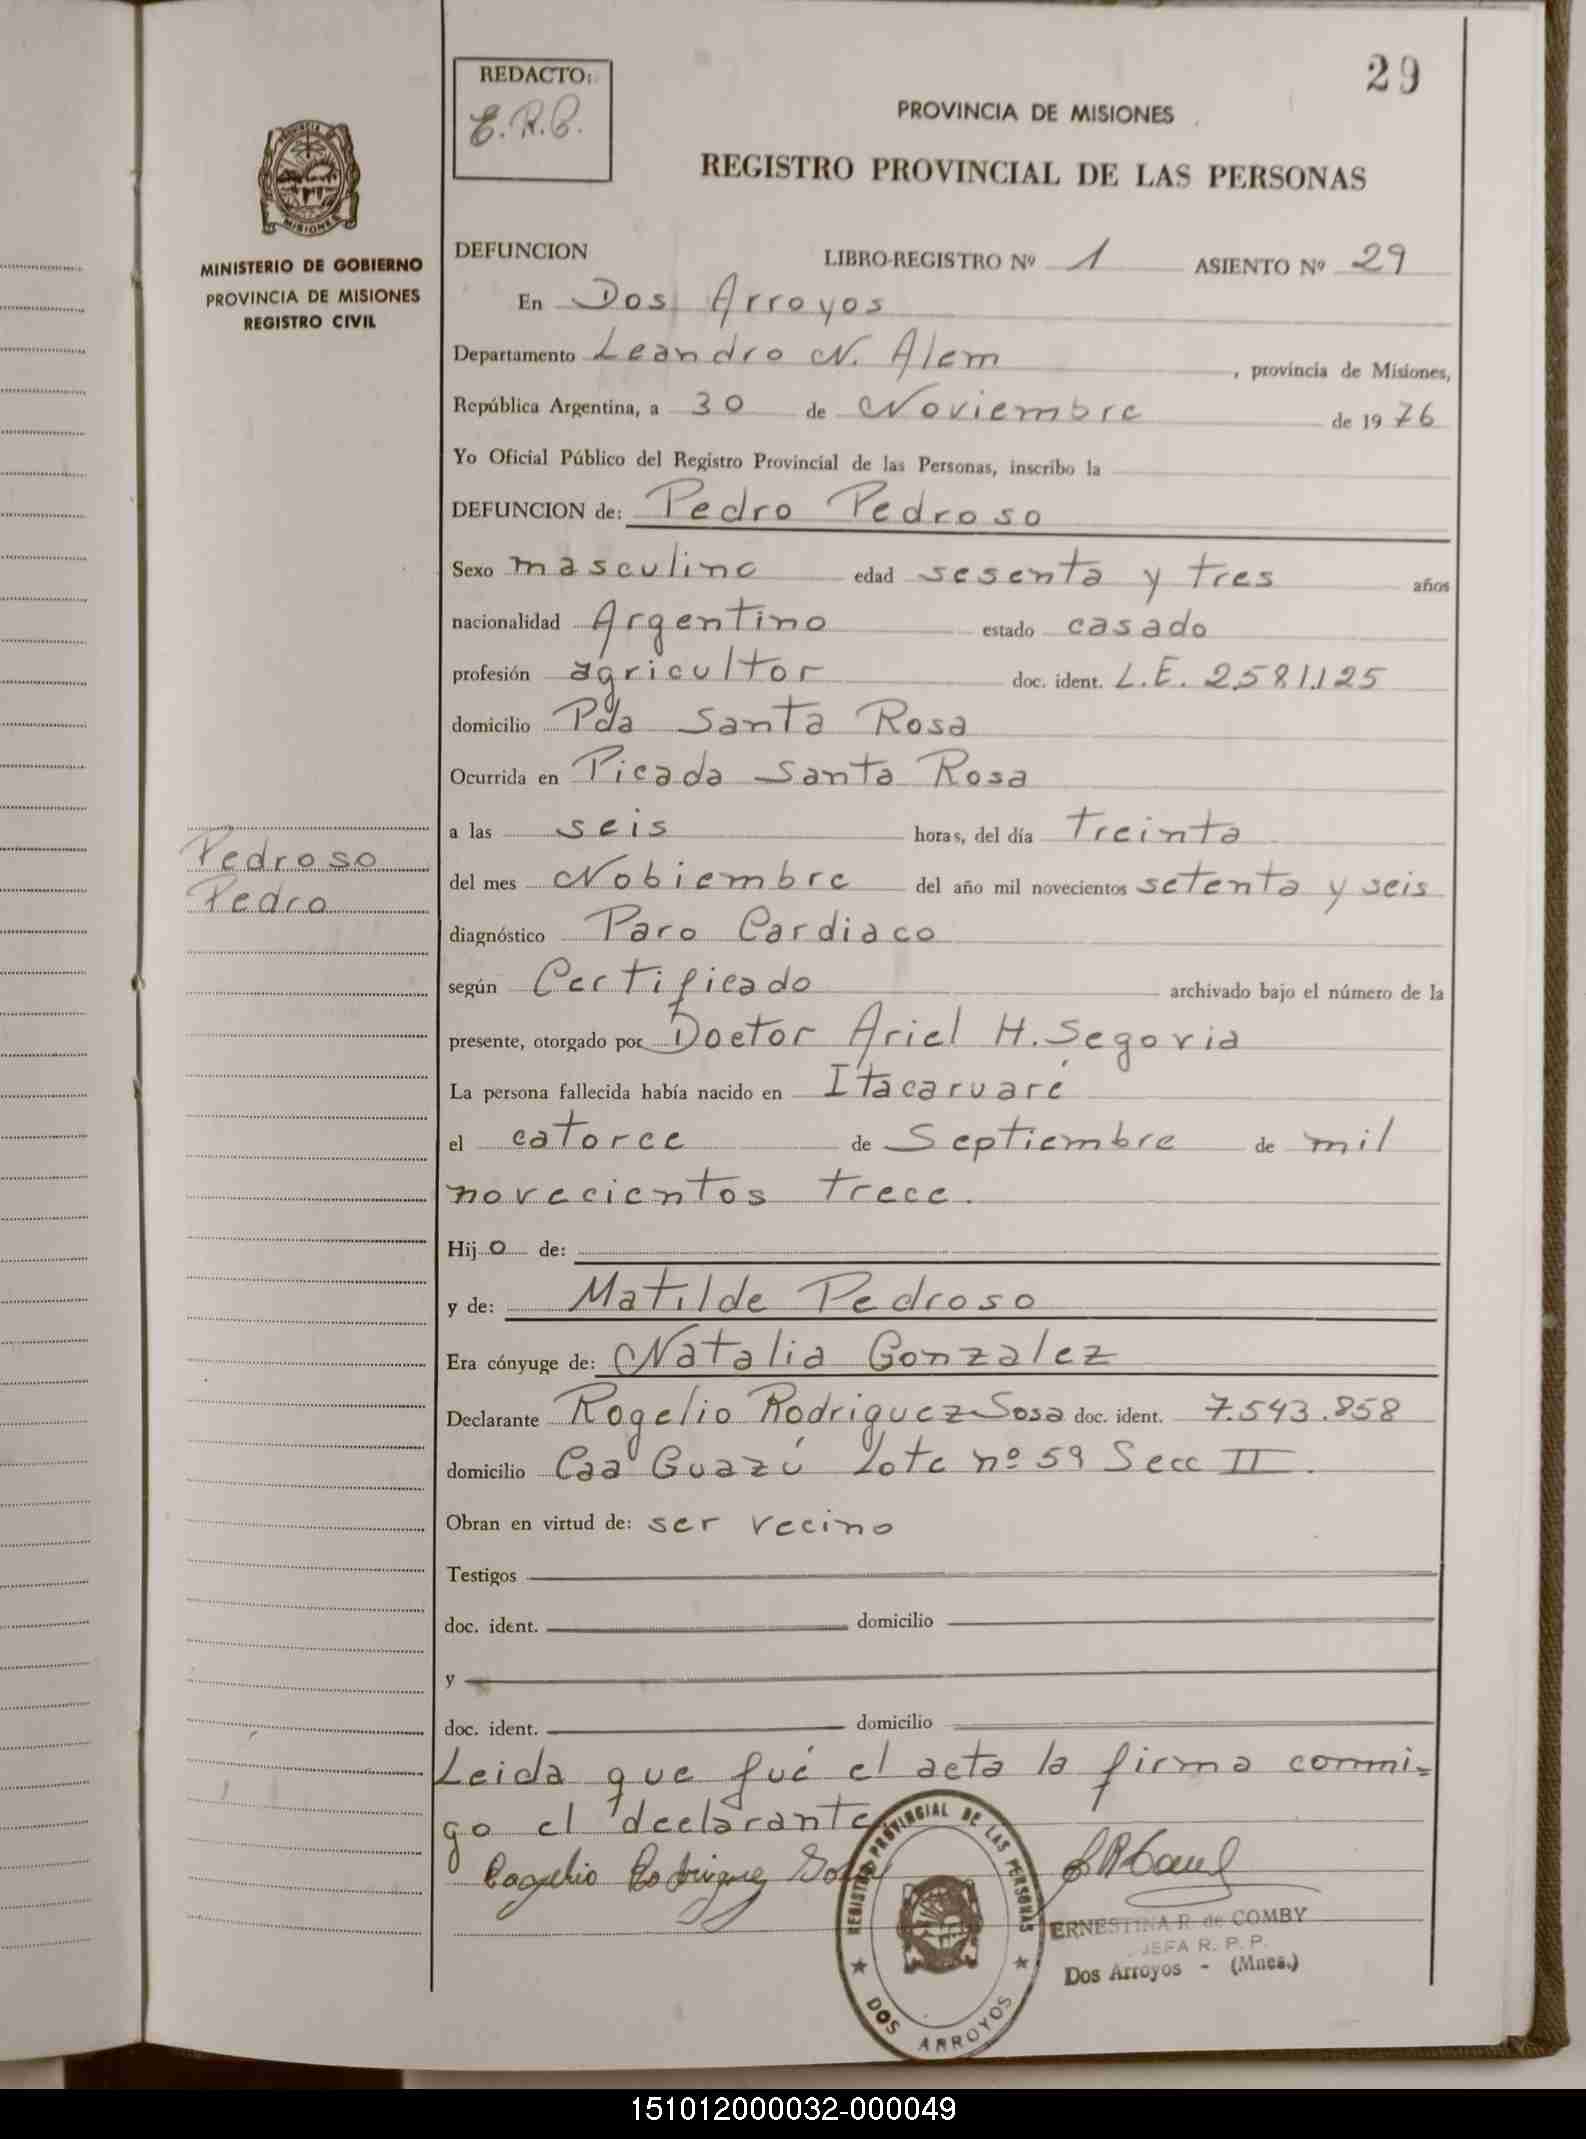 29
REDACTO:
E.R.C.
PROVINCIA DE MISIONES
REGISTRO PROVINCIAL DE LAS PERSONAS
PROVINCIA DE
MISIONES
MINISTERIO DE GOBIERNO
PROVINCIA DE MISIONES
REGISTRO CIVIL
DEFUNCION LIBRO-REGISTRO Nº 1 ASIENTO Nº 29
En Dos Arroyos
Departamento Leandro N. Alem, provincia de Misiones,
República Argentina, a 30 de Noviembre de 1976
Yo Oficial Público del Registro Provincial de las Personas, inscribo la
DEFUNCION de: Pedro Pedroso
Sexo masculino edad sesenta y tres años
nacionalidad Argentino estado casado
profesión agricultor doc. ident. L.E. 2.581.125
domicilio Pda Santa Rosa
Ocurrida en Picada Santa Rosa
a las seis horas, del día Treinta
Pedroso
Pedro
del mes Nobiembre del año mil novecientos setenta y seis
diagnóstico Paro Cardiaco
según Certificado archivado bajo el número de la
presente, otorgado por Doctor Ariel H. Segovia
La persona fallecida había nacido en Itacaruaré
el catorce de Septiembre de mil
novecientos trece.
Hijo de:
y de: Matilde Pedroso
Era cónyuge de: Natalia Gonzalez
Declarante Rogelio Rodriguez Sosa doc. ident. 7.543.858
domicilio Caa Guazú Lote nº 59 Secc II.
Obran en virtud de: ser vecino
Testigos
doc. ident. domicilio
y
doc. ident. domicilio
Leida que fué el acta la firma conmi=
go el declarante
Rogelio Rodriguez Sosa
REGISTRO PROVINCIAL DE LAS PERSONAS
DOS ARROYOS
ERNESTINA R. de COMBY
JEFA R. P. P.
Dos Arroyos - (Mnes.)
151012000032-000049